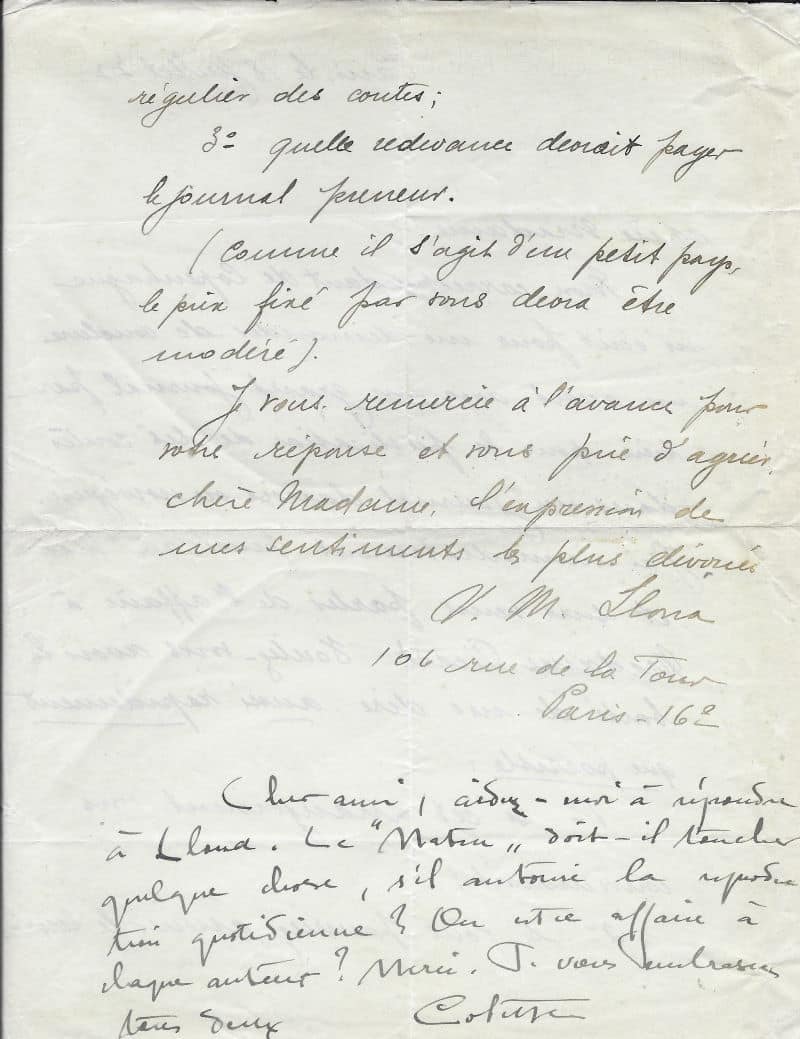 régulier des contes;
3º quelle redevance devrait payer
le journal preneur.
(Comme il s'agit d'un petit pays,
le prix fixé par vous devra être
modéré).
Je vous remercie à l'avance pour
votre réponse et vous prie d'agréer,
chère Madame, l'expression de
mes sentiments les plus dévoués
V. M. Llona
106 rue de la Tour
Paris - 16e
Cher ami, aidez-moi à répondre
à Llona. Le "Matin" doit-il toucher
quelque chose, s'il autorise la reproduc
tion quotidienne? Ou est-ce affaire à
chaque auteur? Merci. Je vous embrasse
tous deux Colette